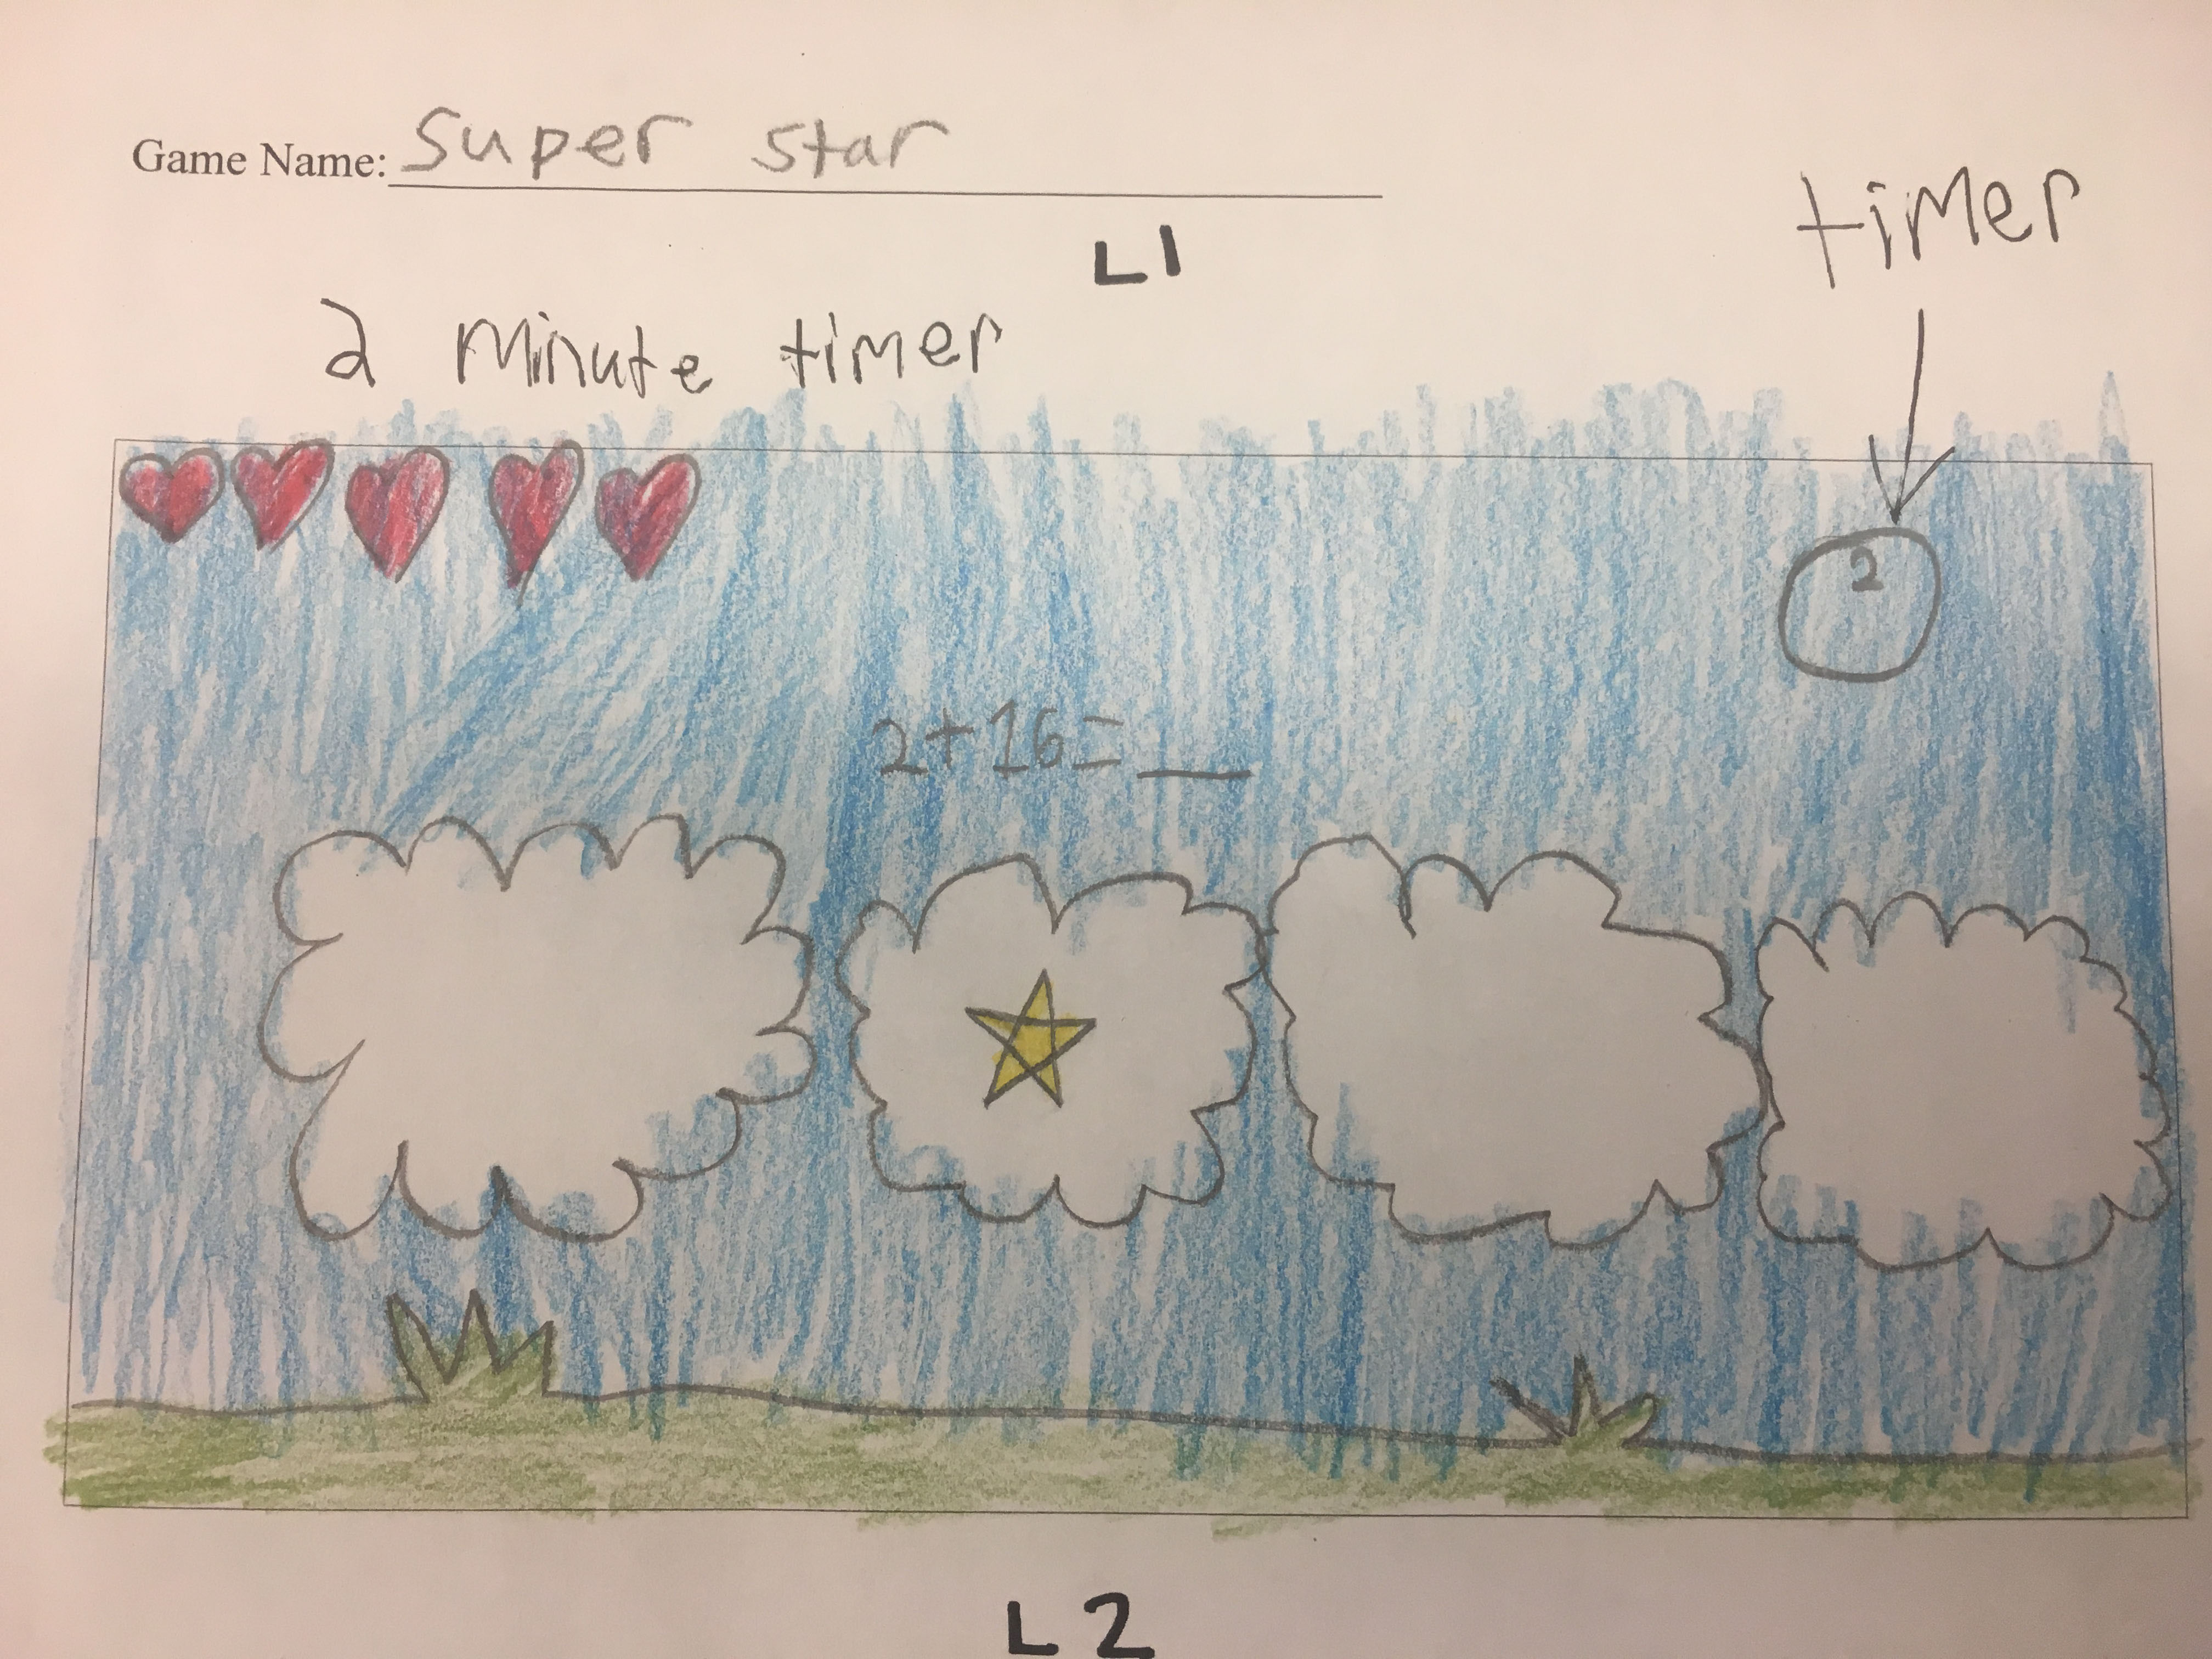 Game Name: Super star
timer
L1
2 minute timer
2
2+16=__
L2